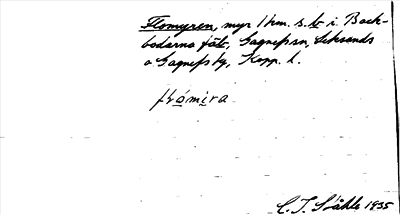 Flomyren, myr 1 km. s. v. i Back-
bodarna fäb., Gagnefs sn, Leksands
o Gagnefs tg, Kopp. l.
flómira
C. I. Ståhle 1935